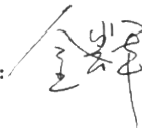 : 金辉